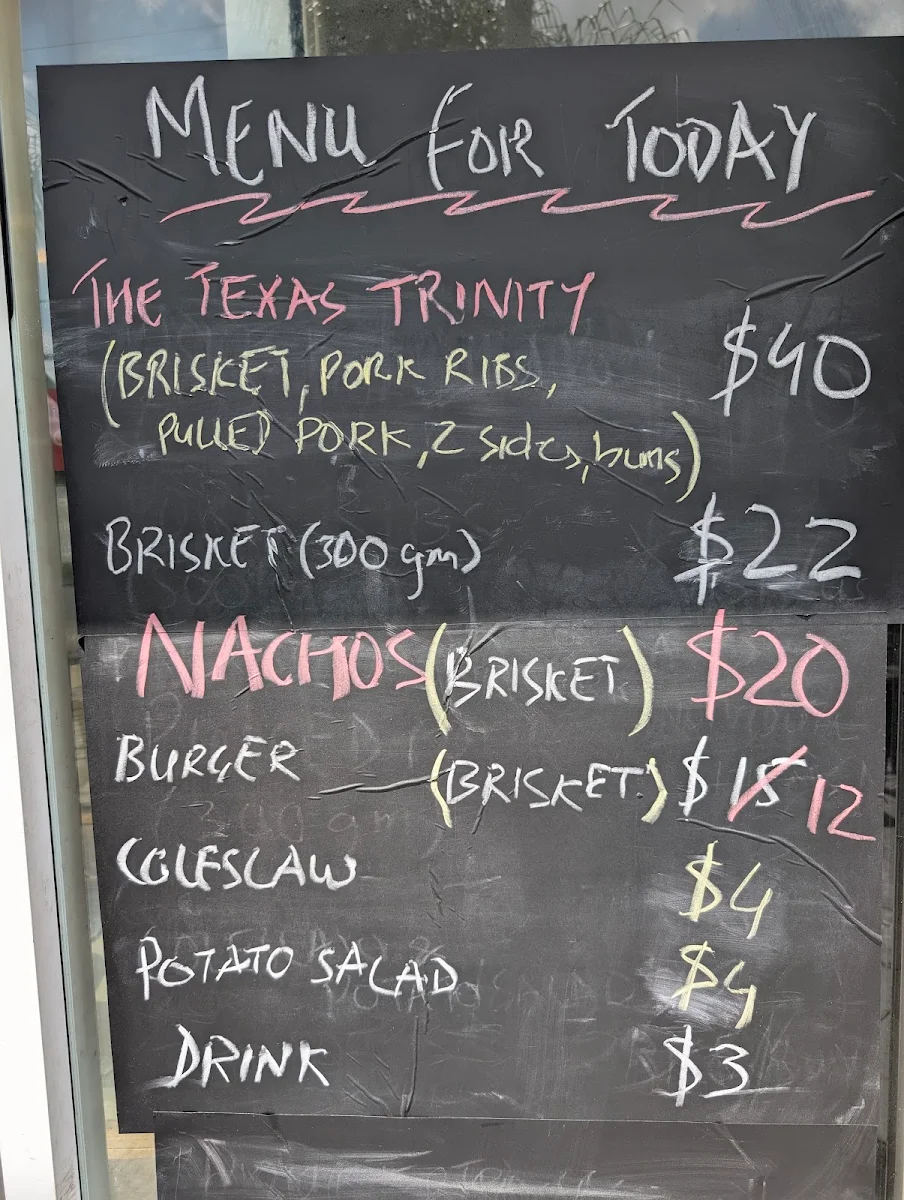 MENU FOR TODAY
THE TEXAS TRINITY
(BRISKET, PORK RIBS, $40
PULLED PORK, 2 sides, buns)
BRISKET (300 gm) $22
NACHOS (BRISKET) $20
BURGER (BRISKET) $ 15 12
COLESLAW $4
POTATO SALAD $4
DRINK $3